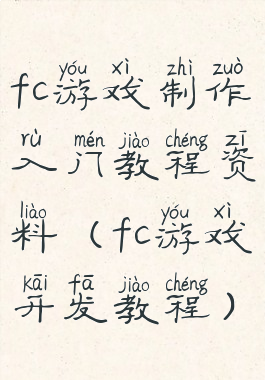 yóu xì zhì zuò
fc游戏制作
rù mén jiào chéng zī
入门教程资
liào yóu xì
料（fc游戏
kāi fā jiào chéng
开发教程）